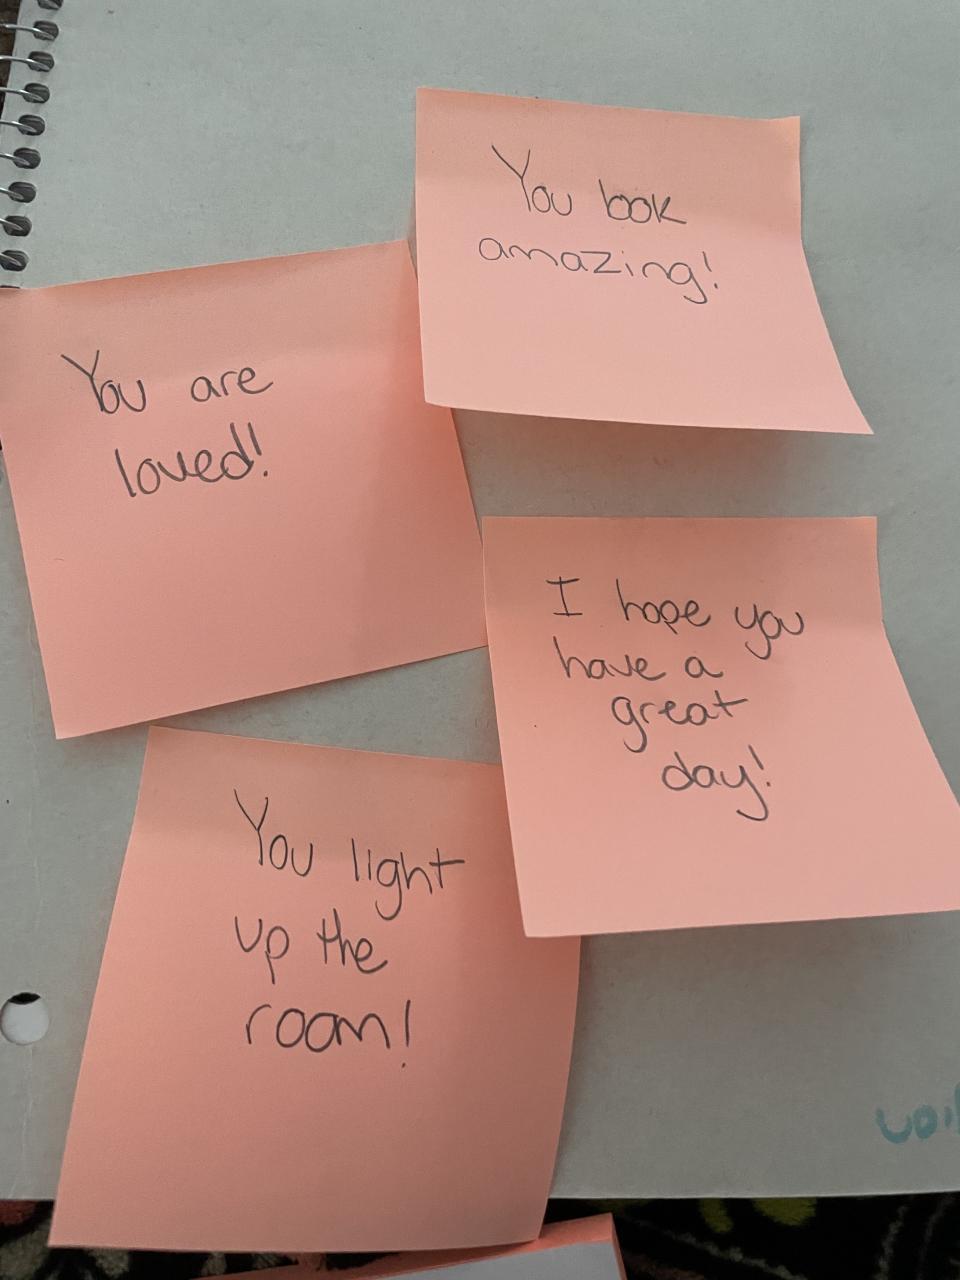 You look
amazing!
You are
loved!
I hope you
have a
great
day!
You light
up the
room!